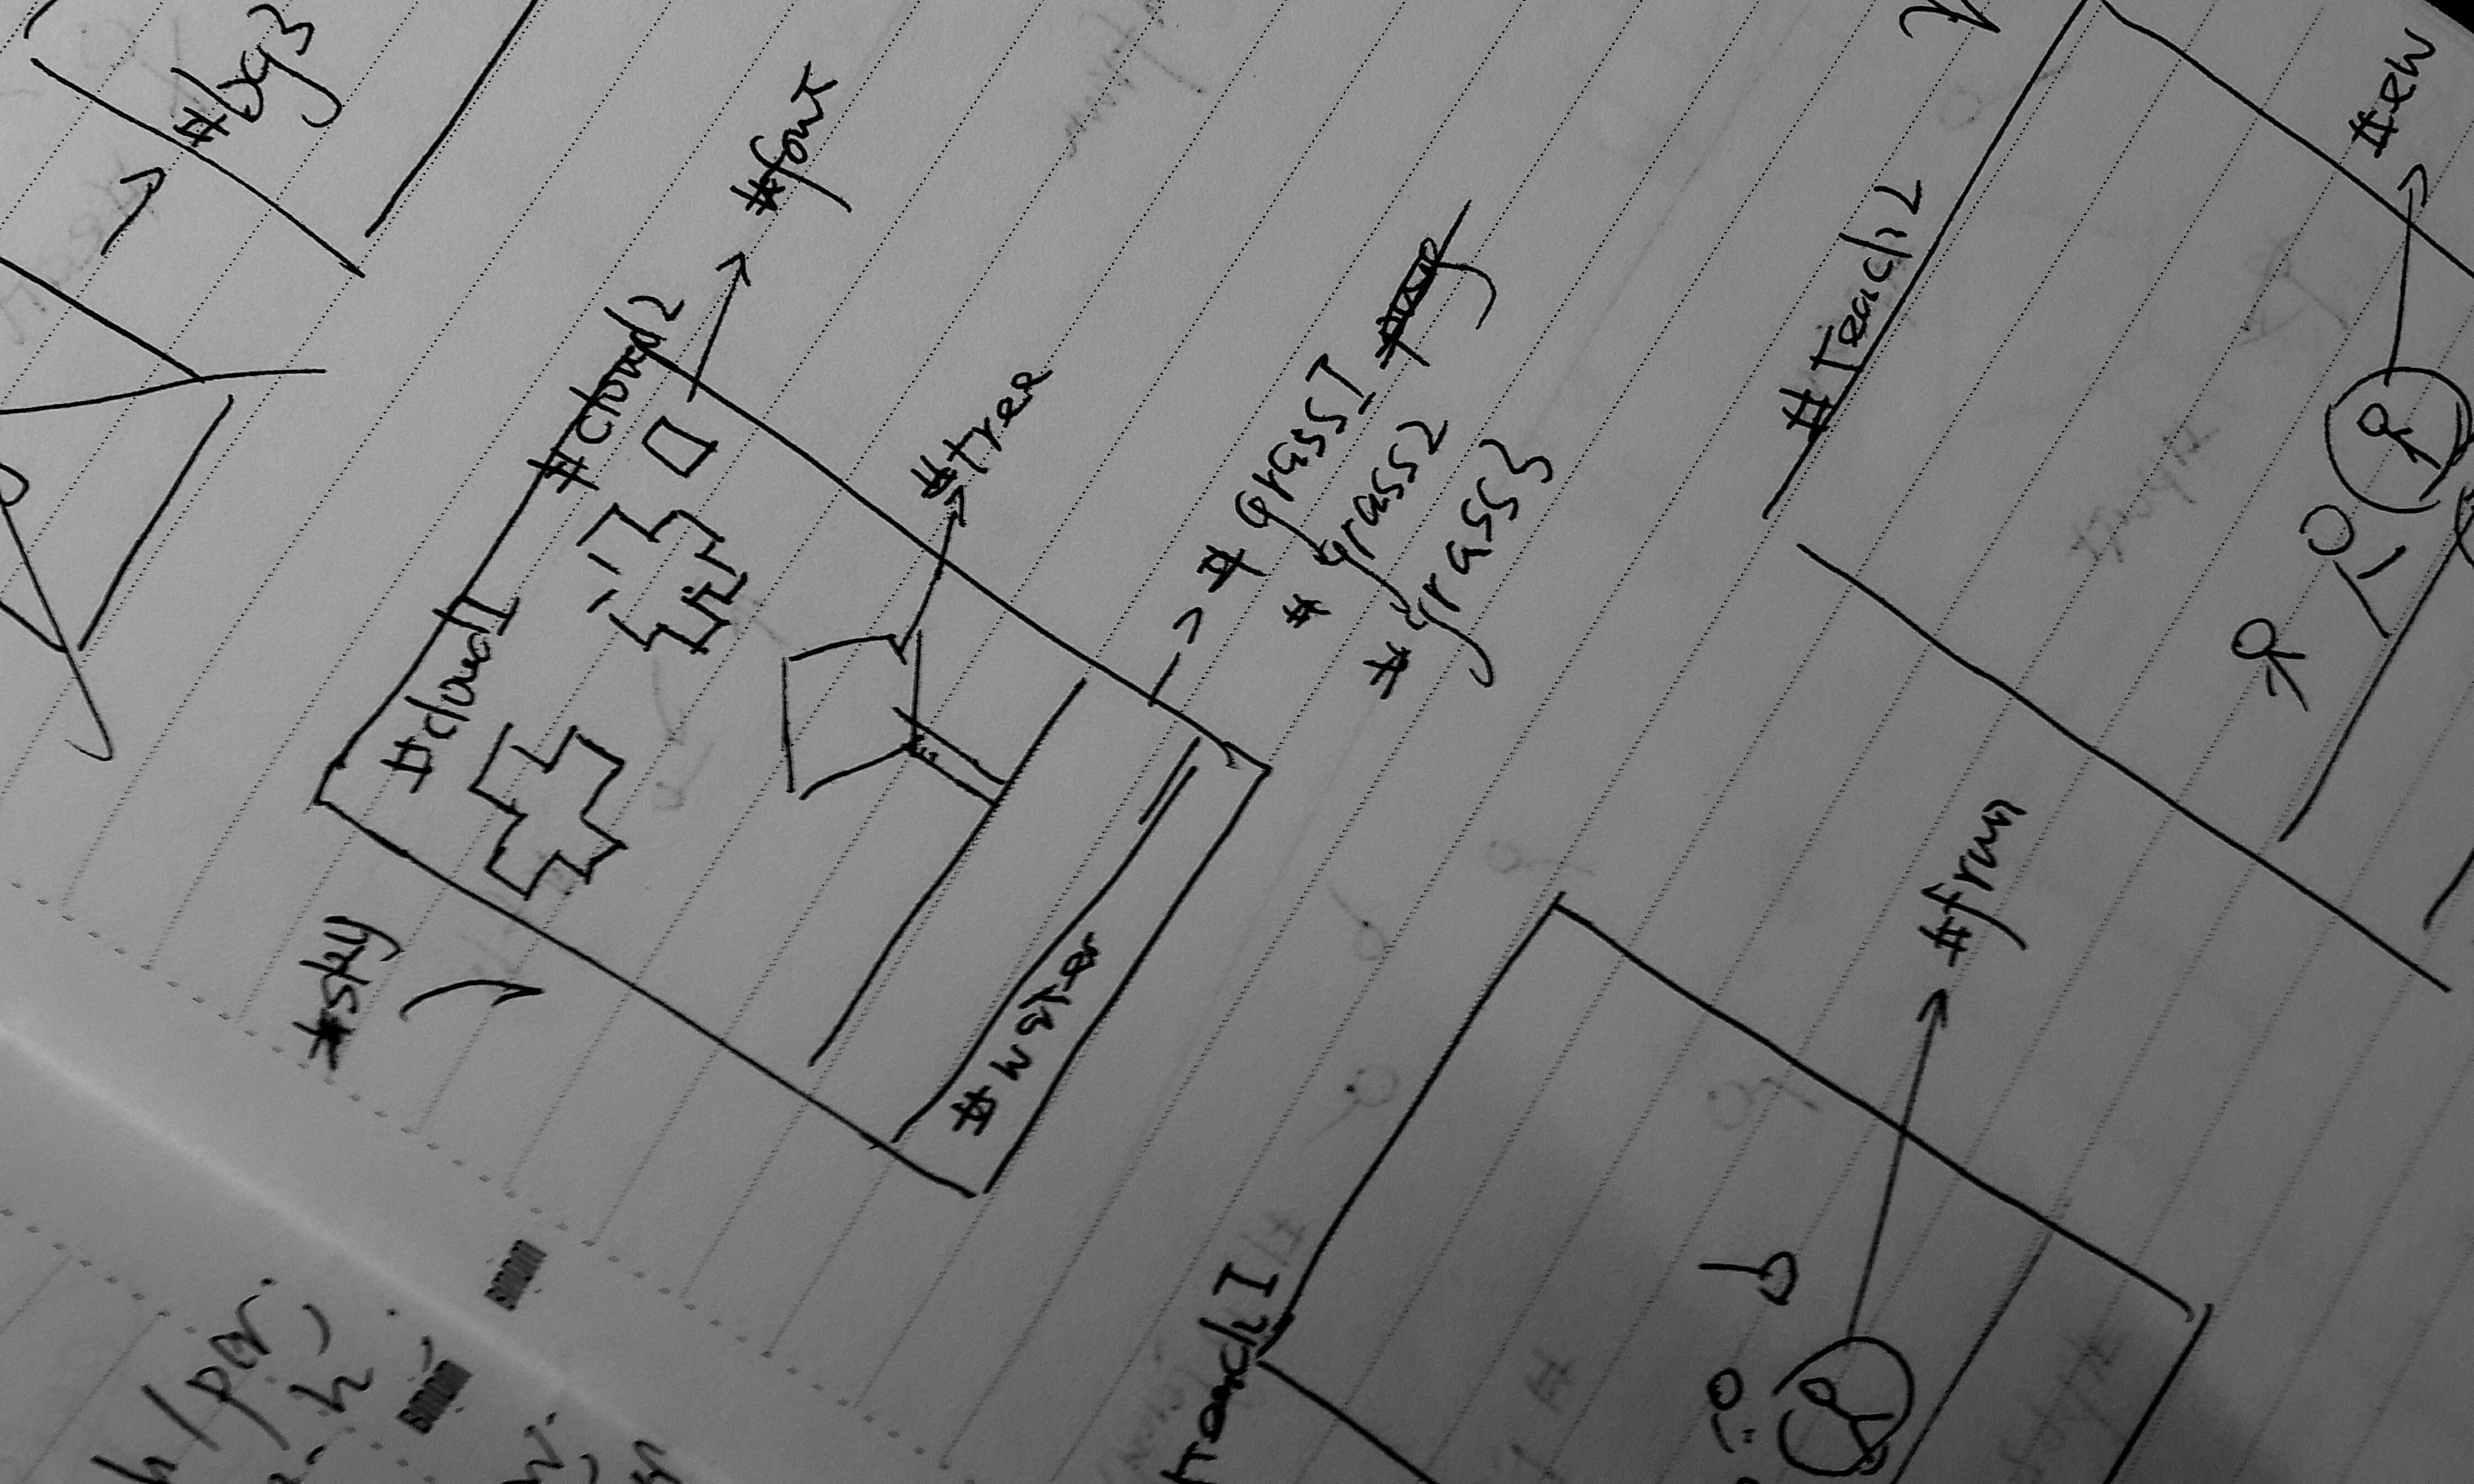 #bg3
#font
#cloud2
#cloud1
#tree
#grass1
#grass2
#grass3
#sky
#water
#Teach2
#ew
#frun
Teach1
h/per,
h